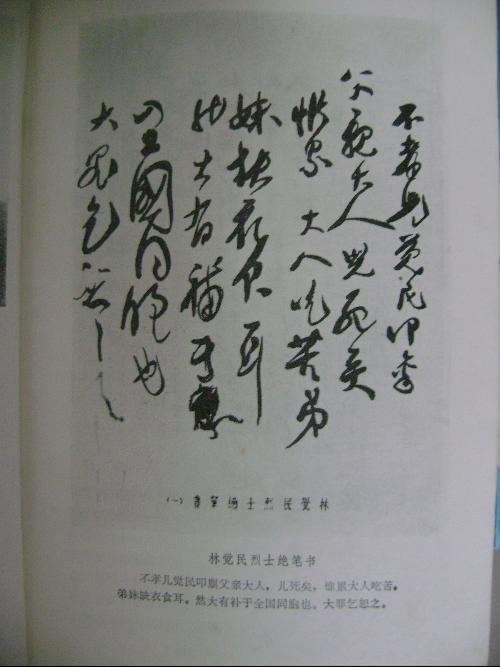 不孝兒覺民叩稟
父親大人兒死矣
惟累大人吃苦弟
妹缺衣食耳
然大有補于
全國同胞也
大罪乞恕之
林覺民烈士絕筆書(一)
林觉民烈士绝笔书
不孝儿觉民叩禀父亲大人，儿死矣，惟累大人吃苦。
弟妹缺衣食耳。然大有补于全国同胞也。大罪乞恕之。